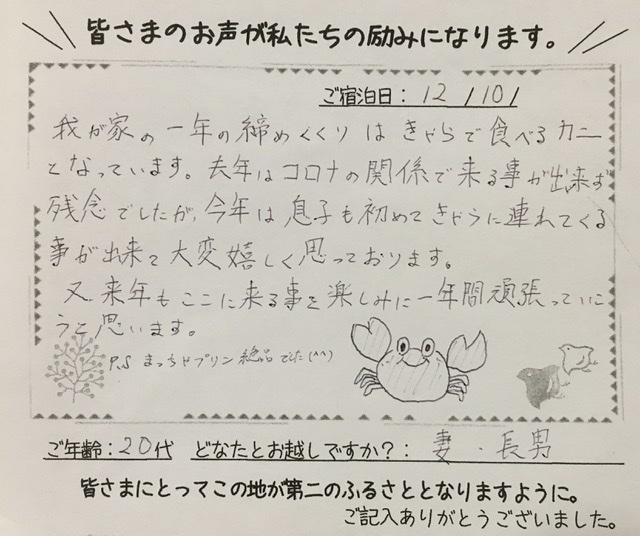 皆さまのお声が私たちの励みになります。
ご宿泊日: 12/10/
我が家の一年の締めくくりはきゃらで食べるカニ
となっています。去年はコロナの関係で来る事が出来ず
残念でしたが、今年は息子も初めてきゃらに連れてくる
事が出来て大変嬉しく思っております。
又来年もここに来る事を楽しみに一年間頑張っていこ
うと思います。
P.S まっちゃプリン絶品でした(^^)
ご年齢:20代 どなたとお越しですか?: 妻・長男
皆さまにとってこの地が第二のふるさととなりますように。
ご記入ありがとうございました。